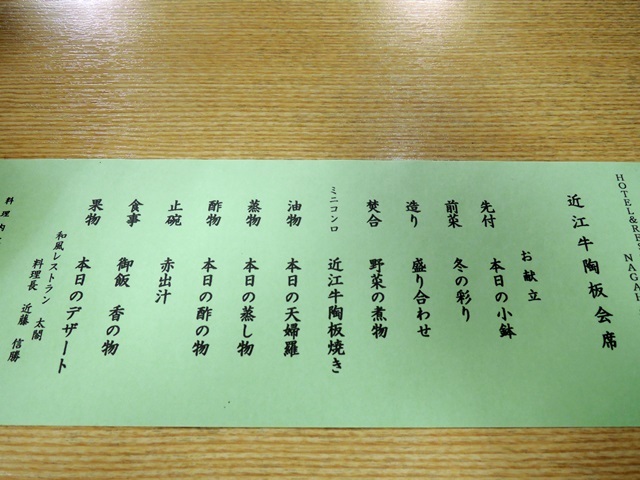 HOTEL&RES NAGA
近江牛陶板会席
お献立
先付 本日の小鉢
前菜 冬の彩り
造り 盛り合わせ
焚合 野菜の煮物
ミニコンロ 近江牛陶板焼き
油物 本日の天婦羅
蒸物 本日の蒸し物
酢物 本日の酢の物
止碗 赤出汁
食事 御飯 香の物
果物 本日のデザート
和風レストラン 太閤
料理長 近藤 信勝
料理内